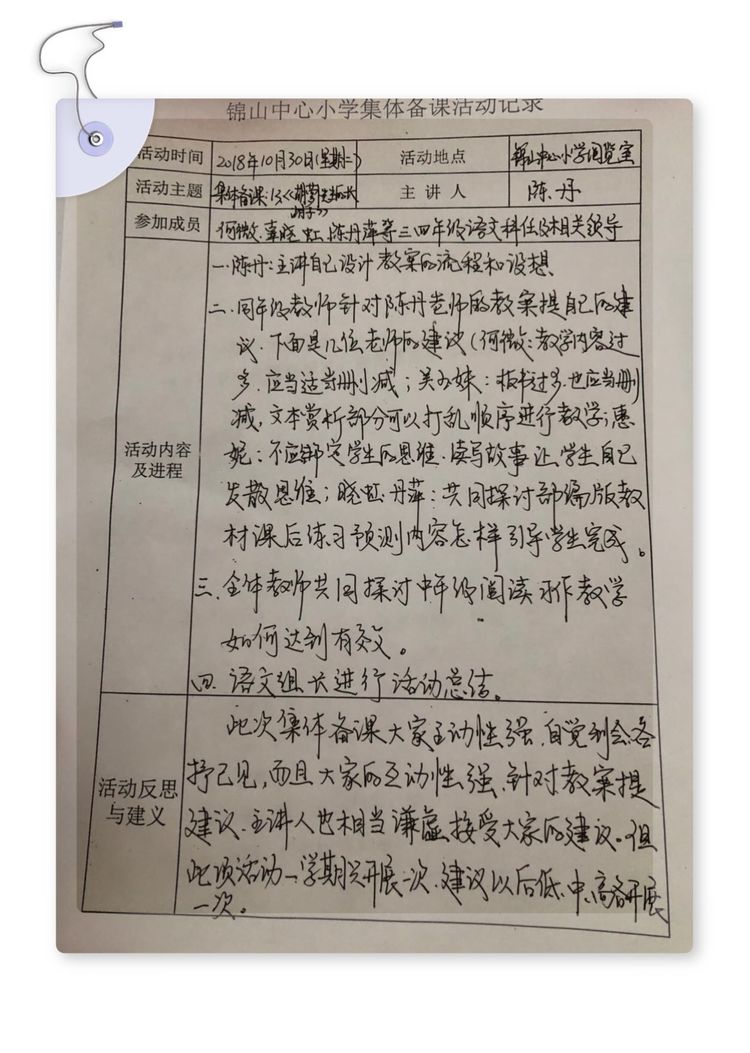 锦山中心小学集体备课活动记录
活动时间 2018年10月30日(星期二) 活动地点 锦山中心小学阅览室
活动主题 集体备课:13《胡萝卜先生的长胡子》 主讲人 陈丹
参加成员 何微、辜晓虹、陈丹萍等三四年级语文科任及相关领导
活动内容及进程
一.陈丹:主讲自己设计教案的流程和设想
二.同年级教师针对陈丹老师的教案提自己的建
议.下面是几位老师的建议(何微:教学内容过
多.应当适当删减;吴小妹:板书过多.也应当删
减,文本赏析部分可以打乱顺序进行教学;惠
妮:不应绑定学生的思维.读写故事让学生自己
发散思维;晓虹.丹萍:共同探讨部编版教
材课后练习预测内容怎样引导学生完成。
三.全体教师共同探讨中年级阅读习作教学
如何达到有效。
四.语文组长进行活动总结。
活动反思与建义
此次集体备课大家主动性强.自觉到会.各
抒己见,而且大家的互动性强.针对教案提
建议.主讲人也相当谦虚接受大家的建议。但
此项活动一学期只开展一次.建议以后低.中.高各开展
一次。